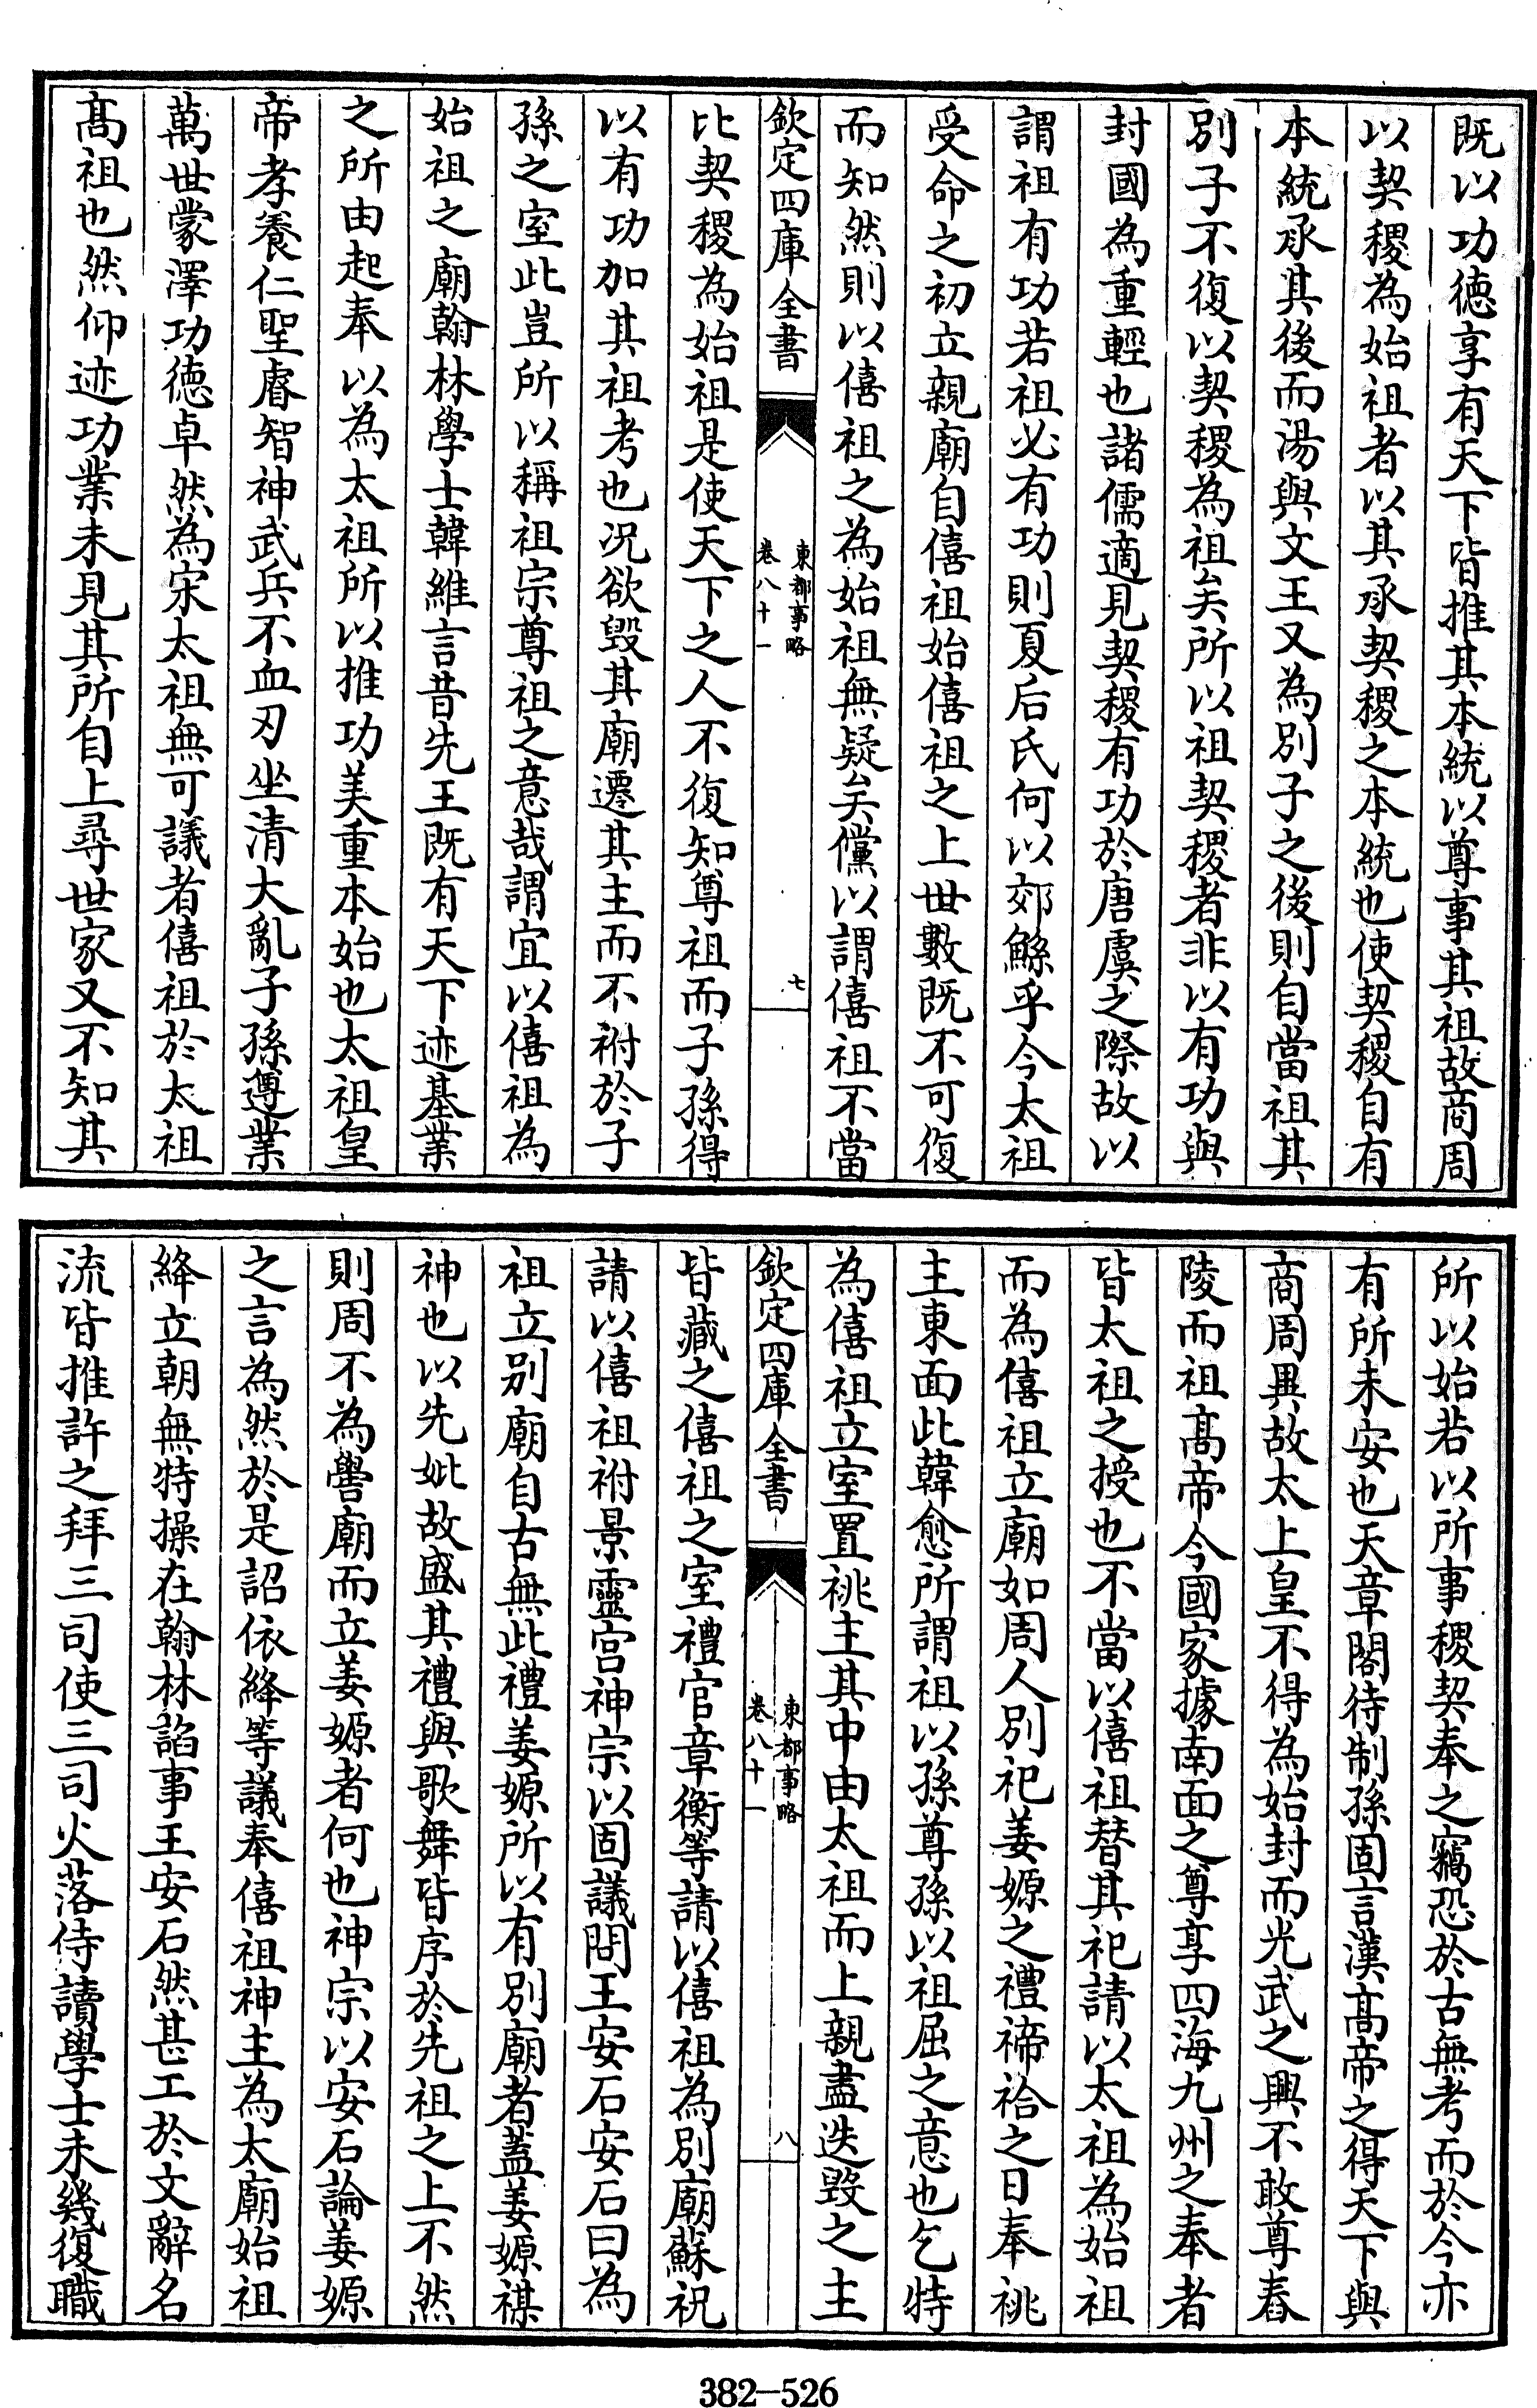 既以功德享有天下皆推其本統以尊事其祖故商周
以契稷為始祖者以其承契稷之本統也使契稷自有
本統承其後而湯與文王又為別子之後則自當祖其
別子不復以契稷為祖矣所以祖契稷者非以有功與
封國為重輕也諸儒適見契稷有功於唐虞之際故以
謂祖有功若祖必有功則夏后氏何以郊鯀乎今太祖
受命之初立親廟自僖祖始僖祖之上世數既不可復
而知然則以僖祖之為始祖無疑矣儻以謂僖祖不當
欽定四庫全書
東都事略
卷八十一
七
比契稷為始祖是使天下之人不復知尊祖而子孫得
以有功加其祖考也況欲毀其廟遷其主而不祔於子
孫之室此豈所以稱祖宗尊祖之意哉謂宜以僖祖為
始祖之廟翰林學士韓維言昔先王既有天下迹基業
之所由起奉以為太祖所以推功美重本始也太祖皇
帝孝養仁聖睿智神武兵不血刃坐清大亂子孫遵業
萬世蒙澤功德卓然為宋太祖無可議者僖祖於太祖
髙祖也然仰迹功業未見其所自上尋世家又不知其
所以始若以所事稷契奉之竊恐於古無考而於今亦
有所未安也天章閣待制孫固言漢髙帝之得天下與
商周異故太上皇不得為始封而光武之興不敢尊舂
陵而祖髙帝今國家據南面之尊享四海九州之奉者
皆太祖之授也不當以僖祖替其祀請以太祖為始祖
而為僖祖立廟如周人別祀姜嫄之禮禘祫之日奉祧
主東面此韓愈所謂祖以孫尊孫以祖屈之意也乞特
為僖祖立室置祧主其中由太祖而上親盡迭毀之主
欽定四庫全書
東都事略
卷八十一
八
皆藏之僖祖之室禮官章衡等請以僖祖為別廟蘇祝
請以僖祖祔景靈宮神宗以固議問王安石安石曰為
祖立別廟自古無此禮姜嫄所以有別廟者蓋姜嫄禖
神也以先妣故盛其禮與歌舞皆序於先祖之上不然
則周不為嚳廟而立姜嫄者何也神宗以安石論姜嫄
之言為然於是詔依絳等議奉僖祖神主為太廟始祖
絳立朝無特操在翰林諂事王安石然甚工於文辭名
流皆推許之拜三司使三司火落侍讀學士未幾復職
382-526